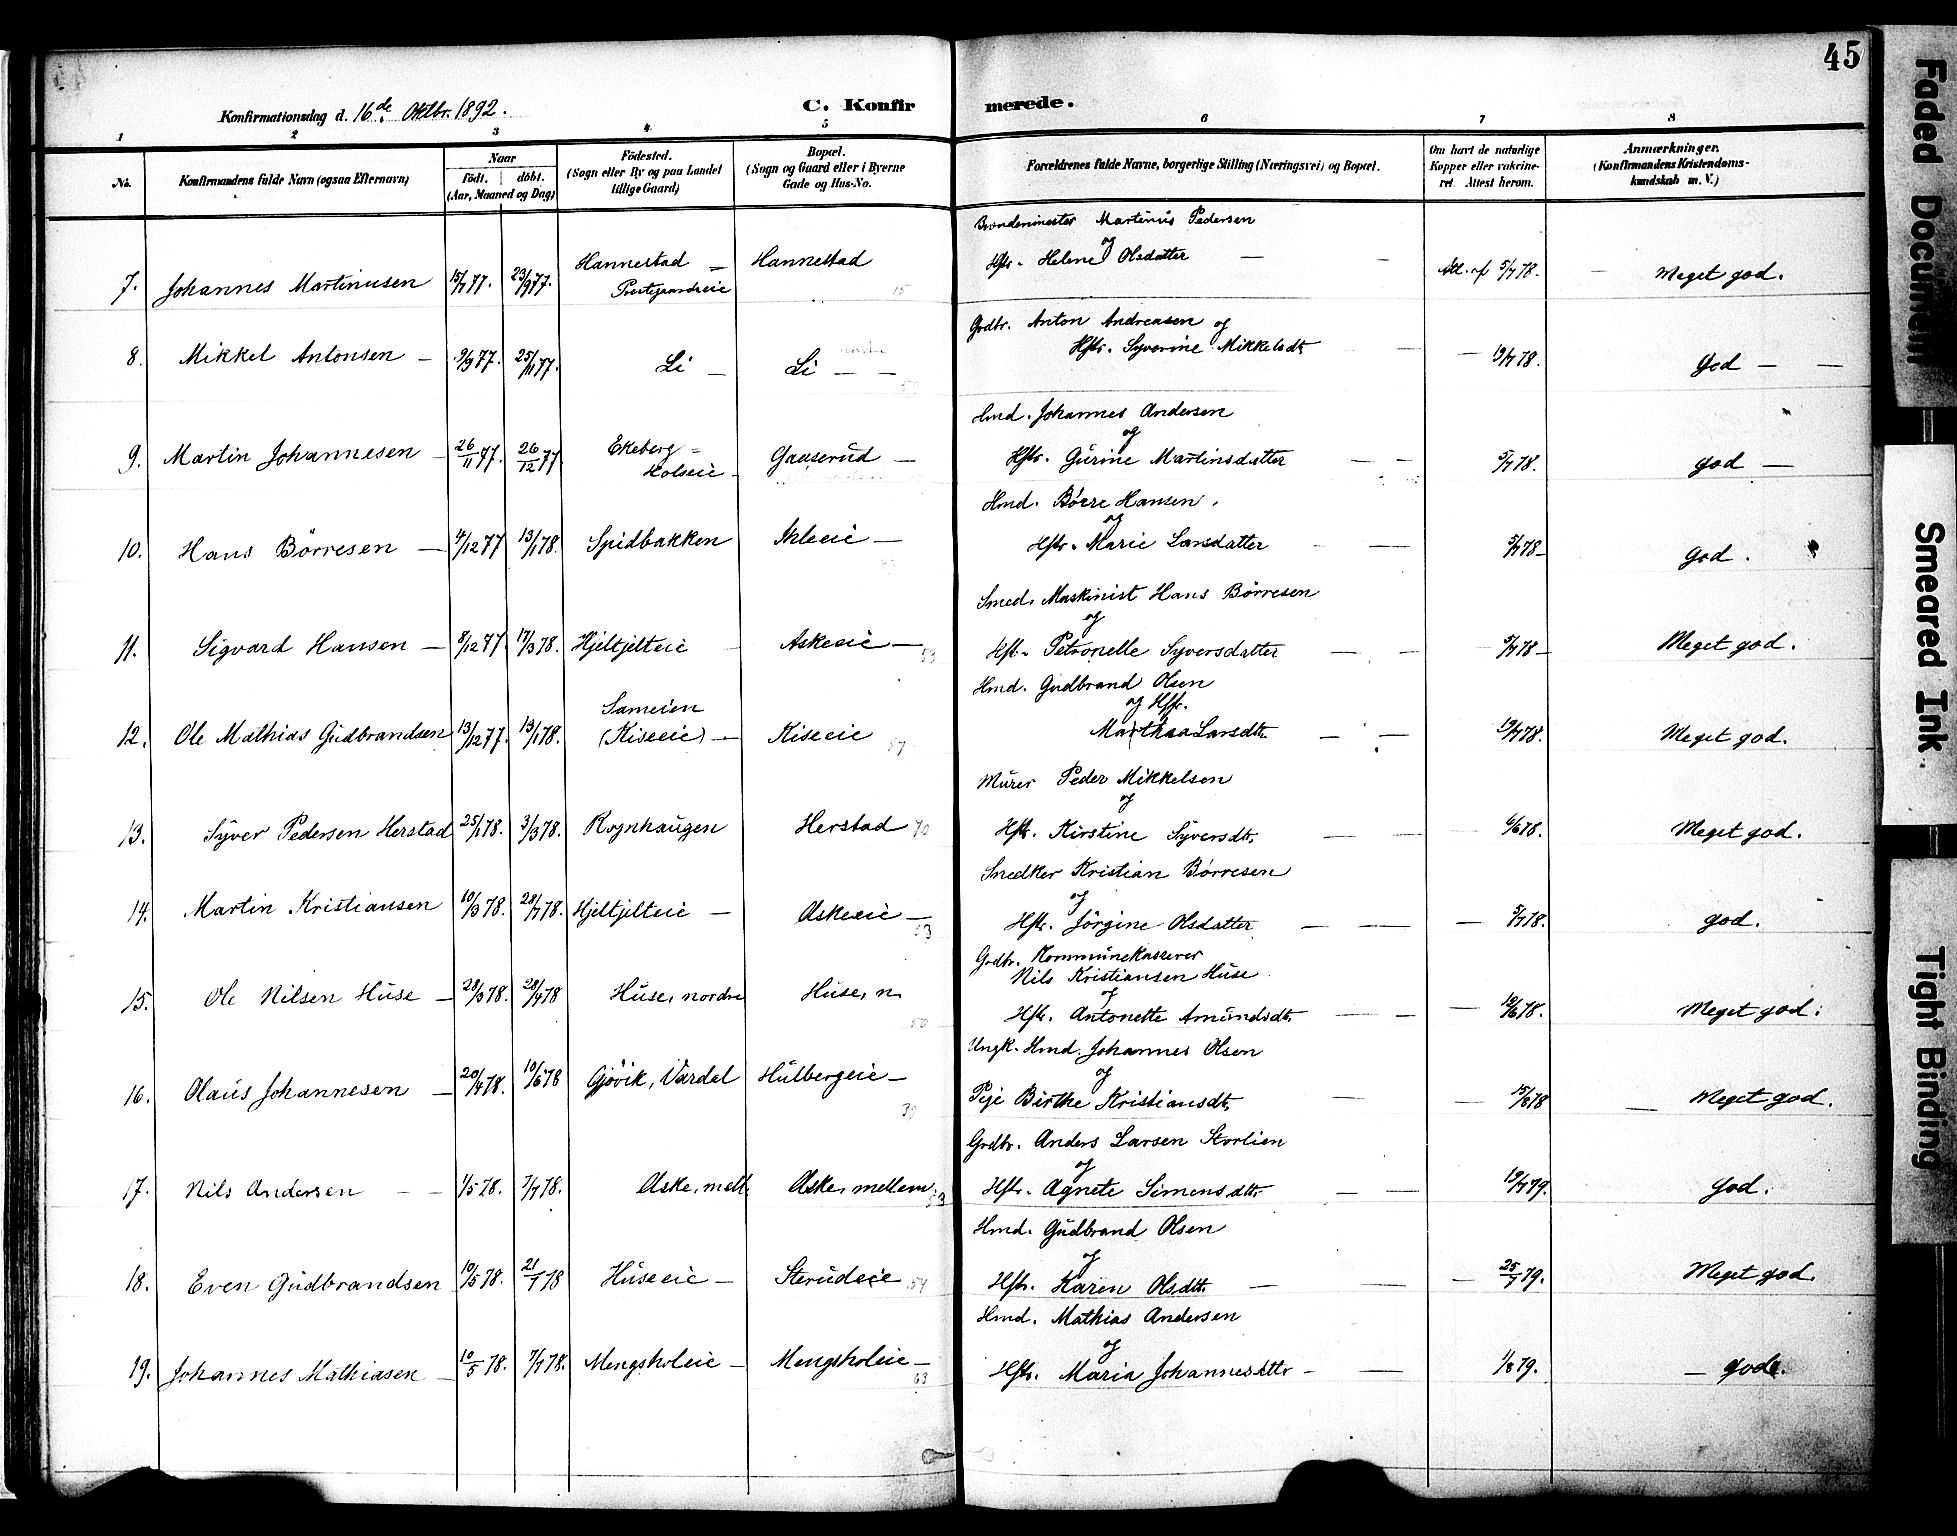 45
Konfirmationsdag d. 16de Oktbr. 1892.
C. Konfirmerede.
1 2 3 4 5 6 7 8
No.
Konfirmandens fulde Navn (ogsaa Efternavn)
Naar
födt. döbt.
(Aar, Maaned og Dag)
Födested.
(Sogn eller By og paa Landet
tillige Gaard)
Bopæl.
(Sogn og Gaard eller i Byerne
Gade og Hus-No.
Forældrenes fulde Navne, borgerlige Stilling (Næringsvei) og Bopæl.
Om havt de naturlige
Kopper eller vakcine-
ret Attest herom.
Anmærkninger.
(Konfirmandens Kristendoms-
kundskab m. V.)
Brøndemester Martinus Pedersen
og
7. Johannes Martinusen 15/7 77. 23/9 77. Hannestad = Hannestad Hstr. Helene Olsdatter — Att. af 5/7 78. Meget god.
Prestegaardseie 15
Grdbr. Anton Andreasen og
8. Mikkel Antonsen — 9/9 77. 25/11 77. Li — Li — — Hstr. Syverine Mikkelsdt. — 19/7 78. God —
Hmd. Johannes Andersen
og
9. Martin Johannesen — 26/11 77. 26/12 77. Ekeberg = Gaaserud — Hstr. Gurine Martinsdatter — — 5/7 78. god —
Holseie
Hmd. Börre Hansen.
og
10. Hans Börresen — 4/12 77 13/1 78. Spidbakken — Hstr. Marie Larsdatter — 5/7 78 — god.
Smed, Maskinist Hans Börresen
og
11. Sigvard Hansen — 8/12 77 17/3 78. Hjeltjelteie Askeeie — 53 Hst. Petronelle Syversdatter — — 5/7 78 — Meget god.
Hmd. Gudbrand Olsen
og Hstr.
12. Ole Mathias Gudbrandsen 13/12 77. 13/1 78. Sameien (Kiseeie) — Kiseeie Marthea Larsdtr. — — 19/7 78. Meget god.
Murer Peder Mikkelsen
og
13. Syver Pedersen Herstad 25/1 78. 3/3 78. Rognhaugen Herstad 70 Hstr. Kirstine Syversdtr. — — 6/6 78. Meget god.
Snedker Kristian Börresen
og
14. Martin Kristiansen 10/3 78. 28/7 78. Hjeltjelteie — Askeeie — 53 Hstr. Jörgine Olsdatter — — 5/7 78. god.
Grdbr. Kommunekasserer
Nils Kristiansen Huse
og
15. Ole Nilsen Huse — 28/3 78. 28/4 78 Huse, nordre Huse, n. 50 Hstr. Antonette Amundsdtr. — — 10/6 78. Meget god.
Ungk. Hmd. Johannes Olsen
og
16. Olaus Johannesen — 20/4 78. 10/6 78 Gjövik, Vardal Hulbergeie — 39 Pige Birthe Kristiansdt. — — 15/8 78 — Meget god.
Grdbr. Anders Larsen Storlien
og
17. Nils Andersen — — 1/5 78. 7/7 78. Aske, mell. Aske, mellem. 53 Hstr. Agnete Simensdtr. — — 19/7 79. God.
Hmd. Gudbrand Olsen
og
18. Even Gudbrandsen 10/5 78. 21/7 78 Huseeie — Sterudeie 54 Hstr. Karen Olsdtr. — — 25/7 79. Meget god.
Hmd. Mathias Andersen
og
19. Johannes Mathiasen — 10/5 78. 7/7 78. Mengsholeie — Mengsholeie — 63 Hstr. Maria Johannesdtr — — 1/8 79. — god.
Faded Document
Smeared Ink.
Tight Binding